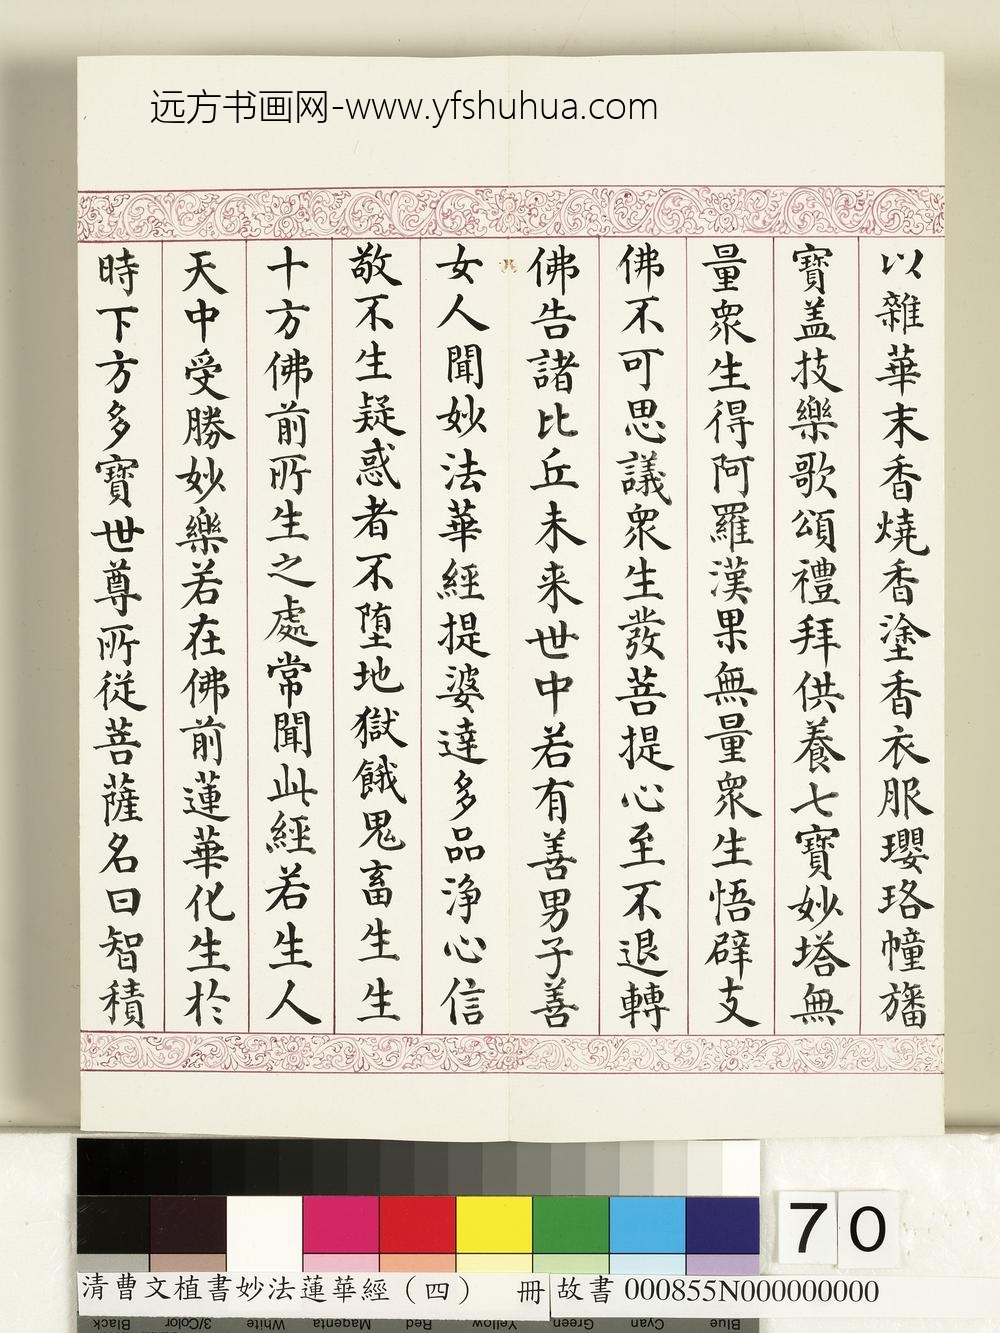 远方书画网-www.yfshuhua.com
以雜華末香燒香塗香衣服瓔珞幢旛
寶盖技樂歌頌禮拜供養七寶妙塔無
量衆生得阿羅漢果無量衆生悟辟支
佛不可思議衆生發菩提心至不退轉
佛告諸比丘未来世中若有善男子善
女人聞妙法華經提婆達多品淨心信
敬不生疑惑者不墮地獄餓鬼畜生生
十方佛前所生之處常聞此經若生人
天中受勝妙樂若在佛前蓮華化生於
時下方多寶世尊所從菩薩名曰智積
70
清曹文植書妙法蓮華經（四） 冊
故書 000855N000000000
Black
3/Color
White
Magenta
Red
Yellow
Green
Cyan
Blue